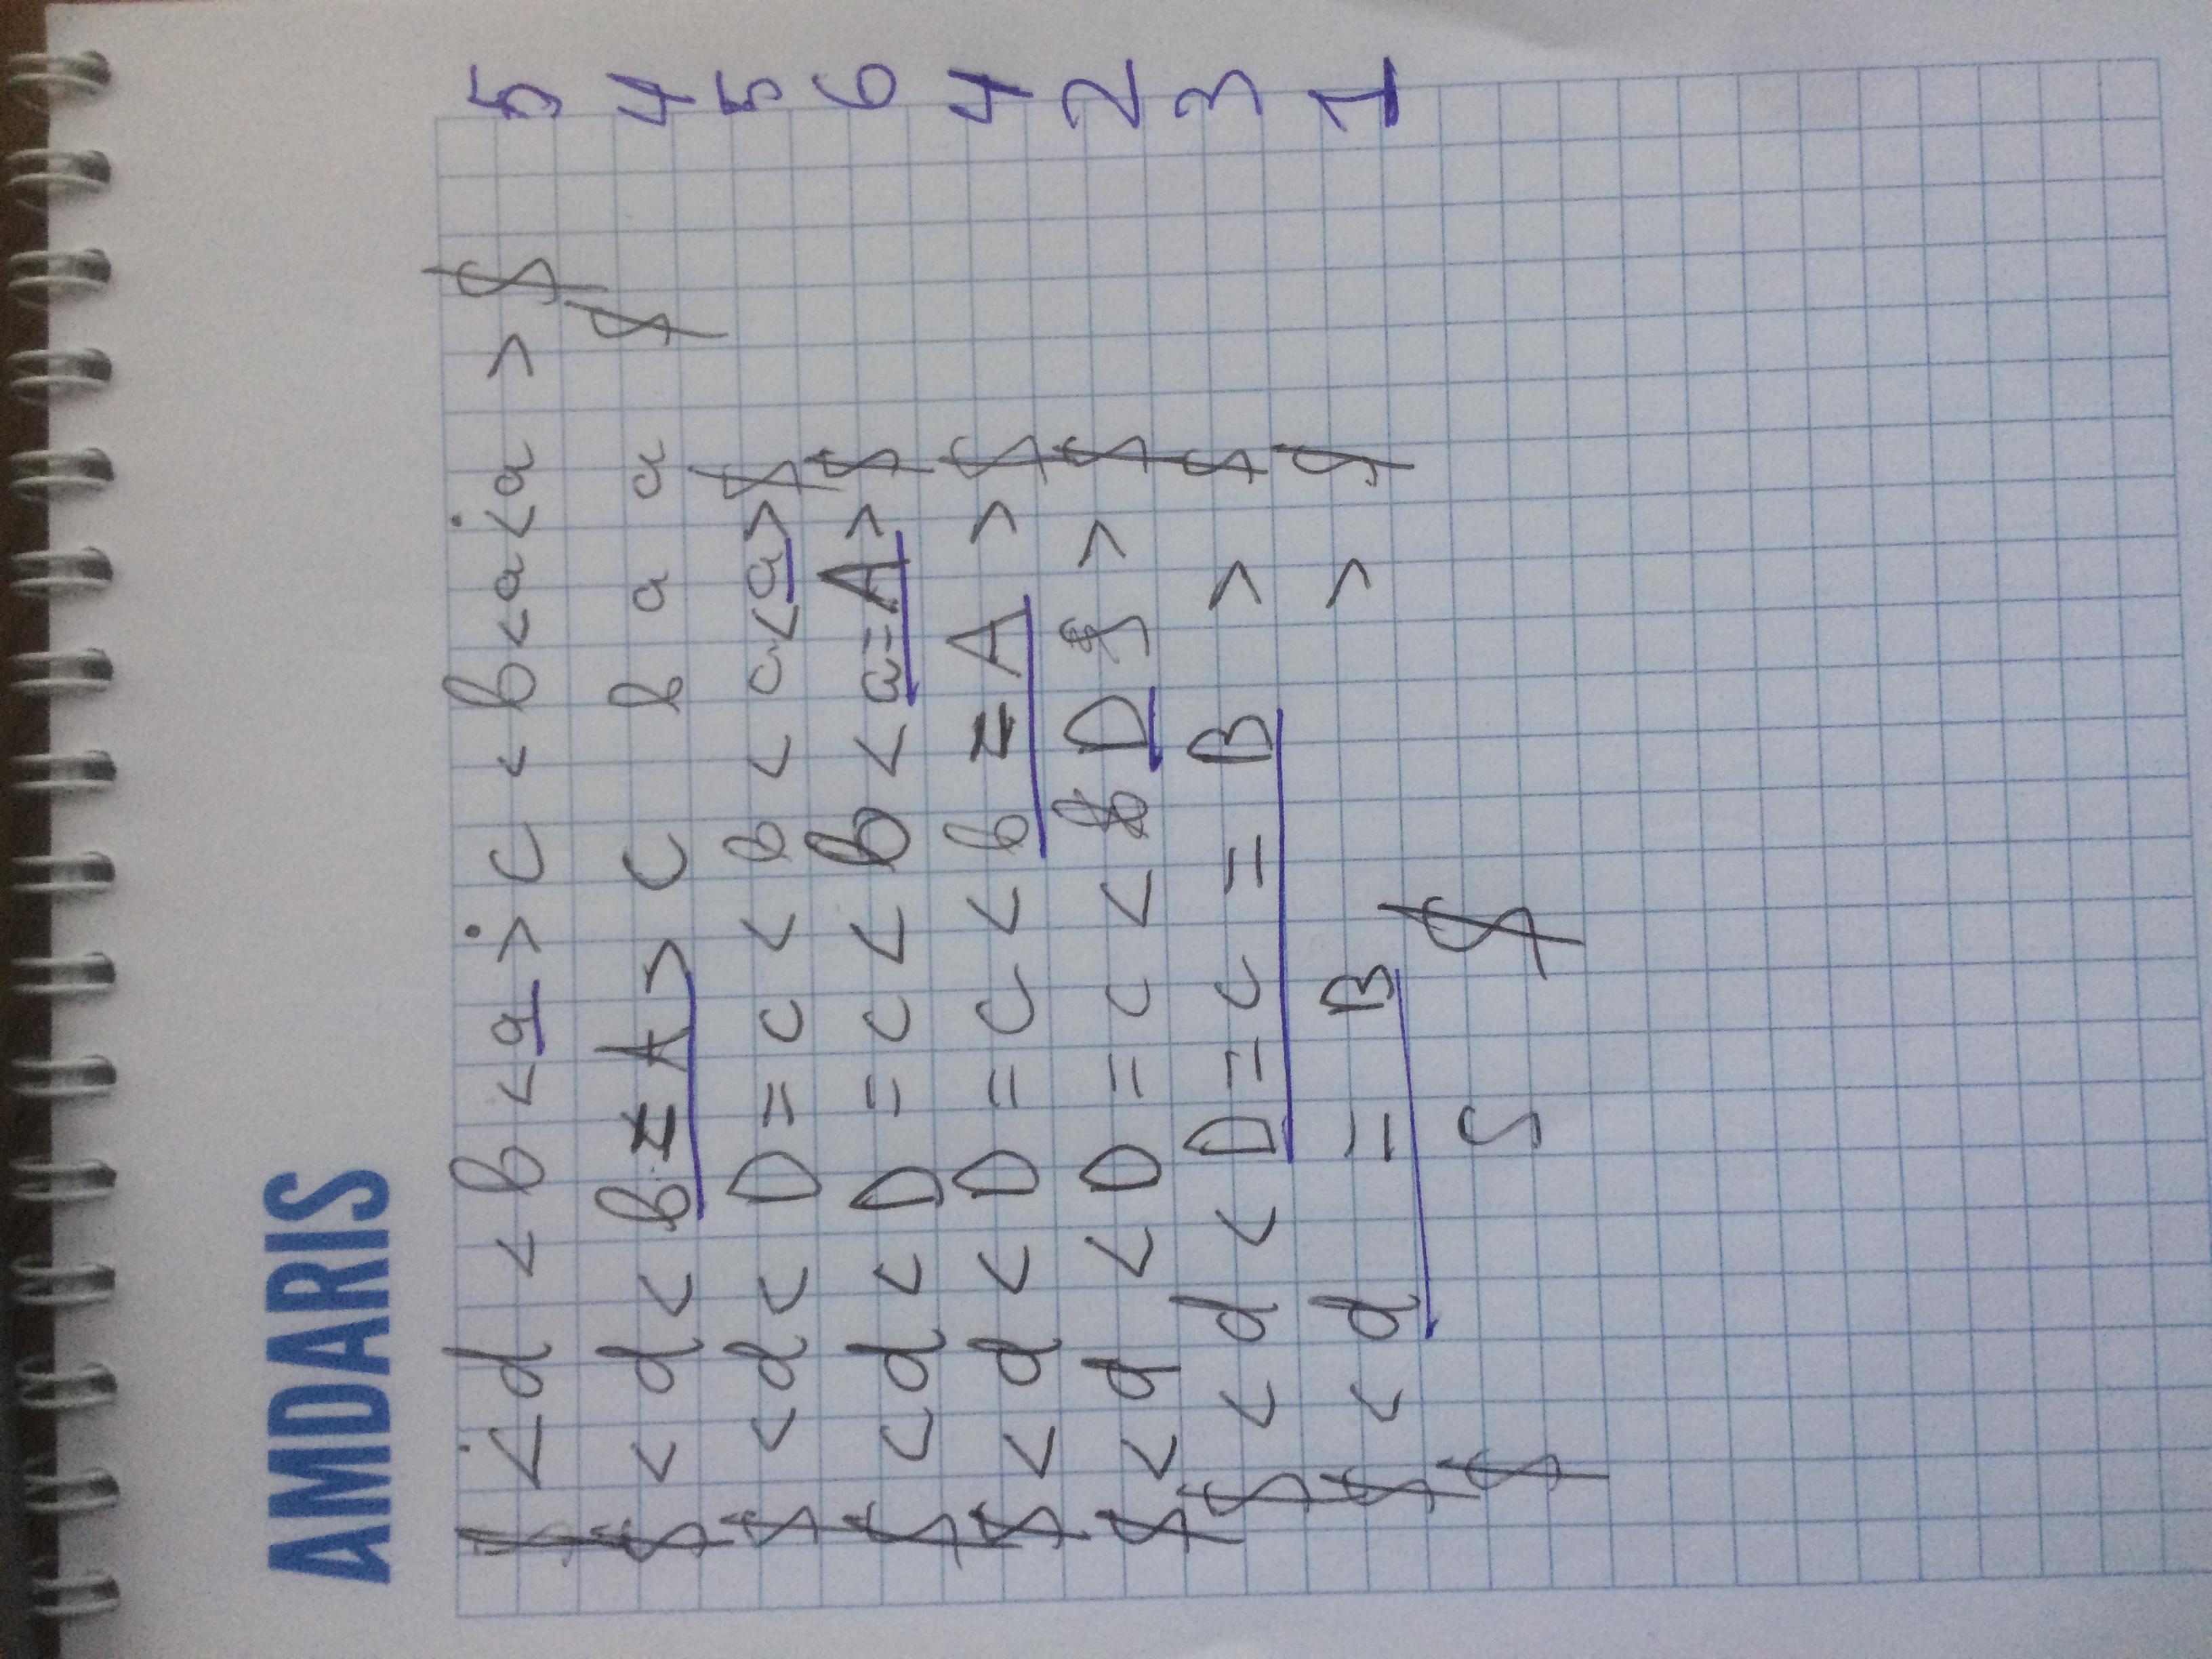 AMDARIS
$ < d < b < a > c < b < a < a > $ 5
$ < d < b = A > c b a a $ 4
$ < d < D = c < b < a < a > $ 5
$ < d < D = c < b < a = A > $ 6
$ < d < D = c < b = A > $ 4
$ < d < D = c < D > $ 2
$ < d < D = c = B > $ 3
$ < d = B > $ 1
$ S $